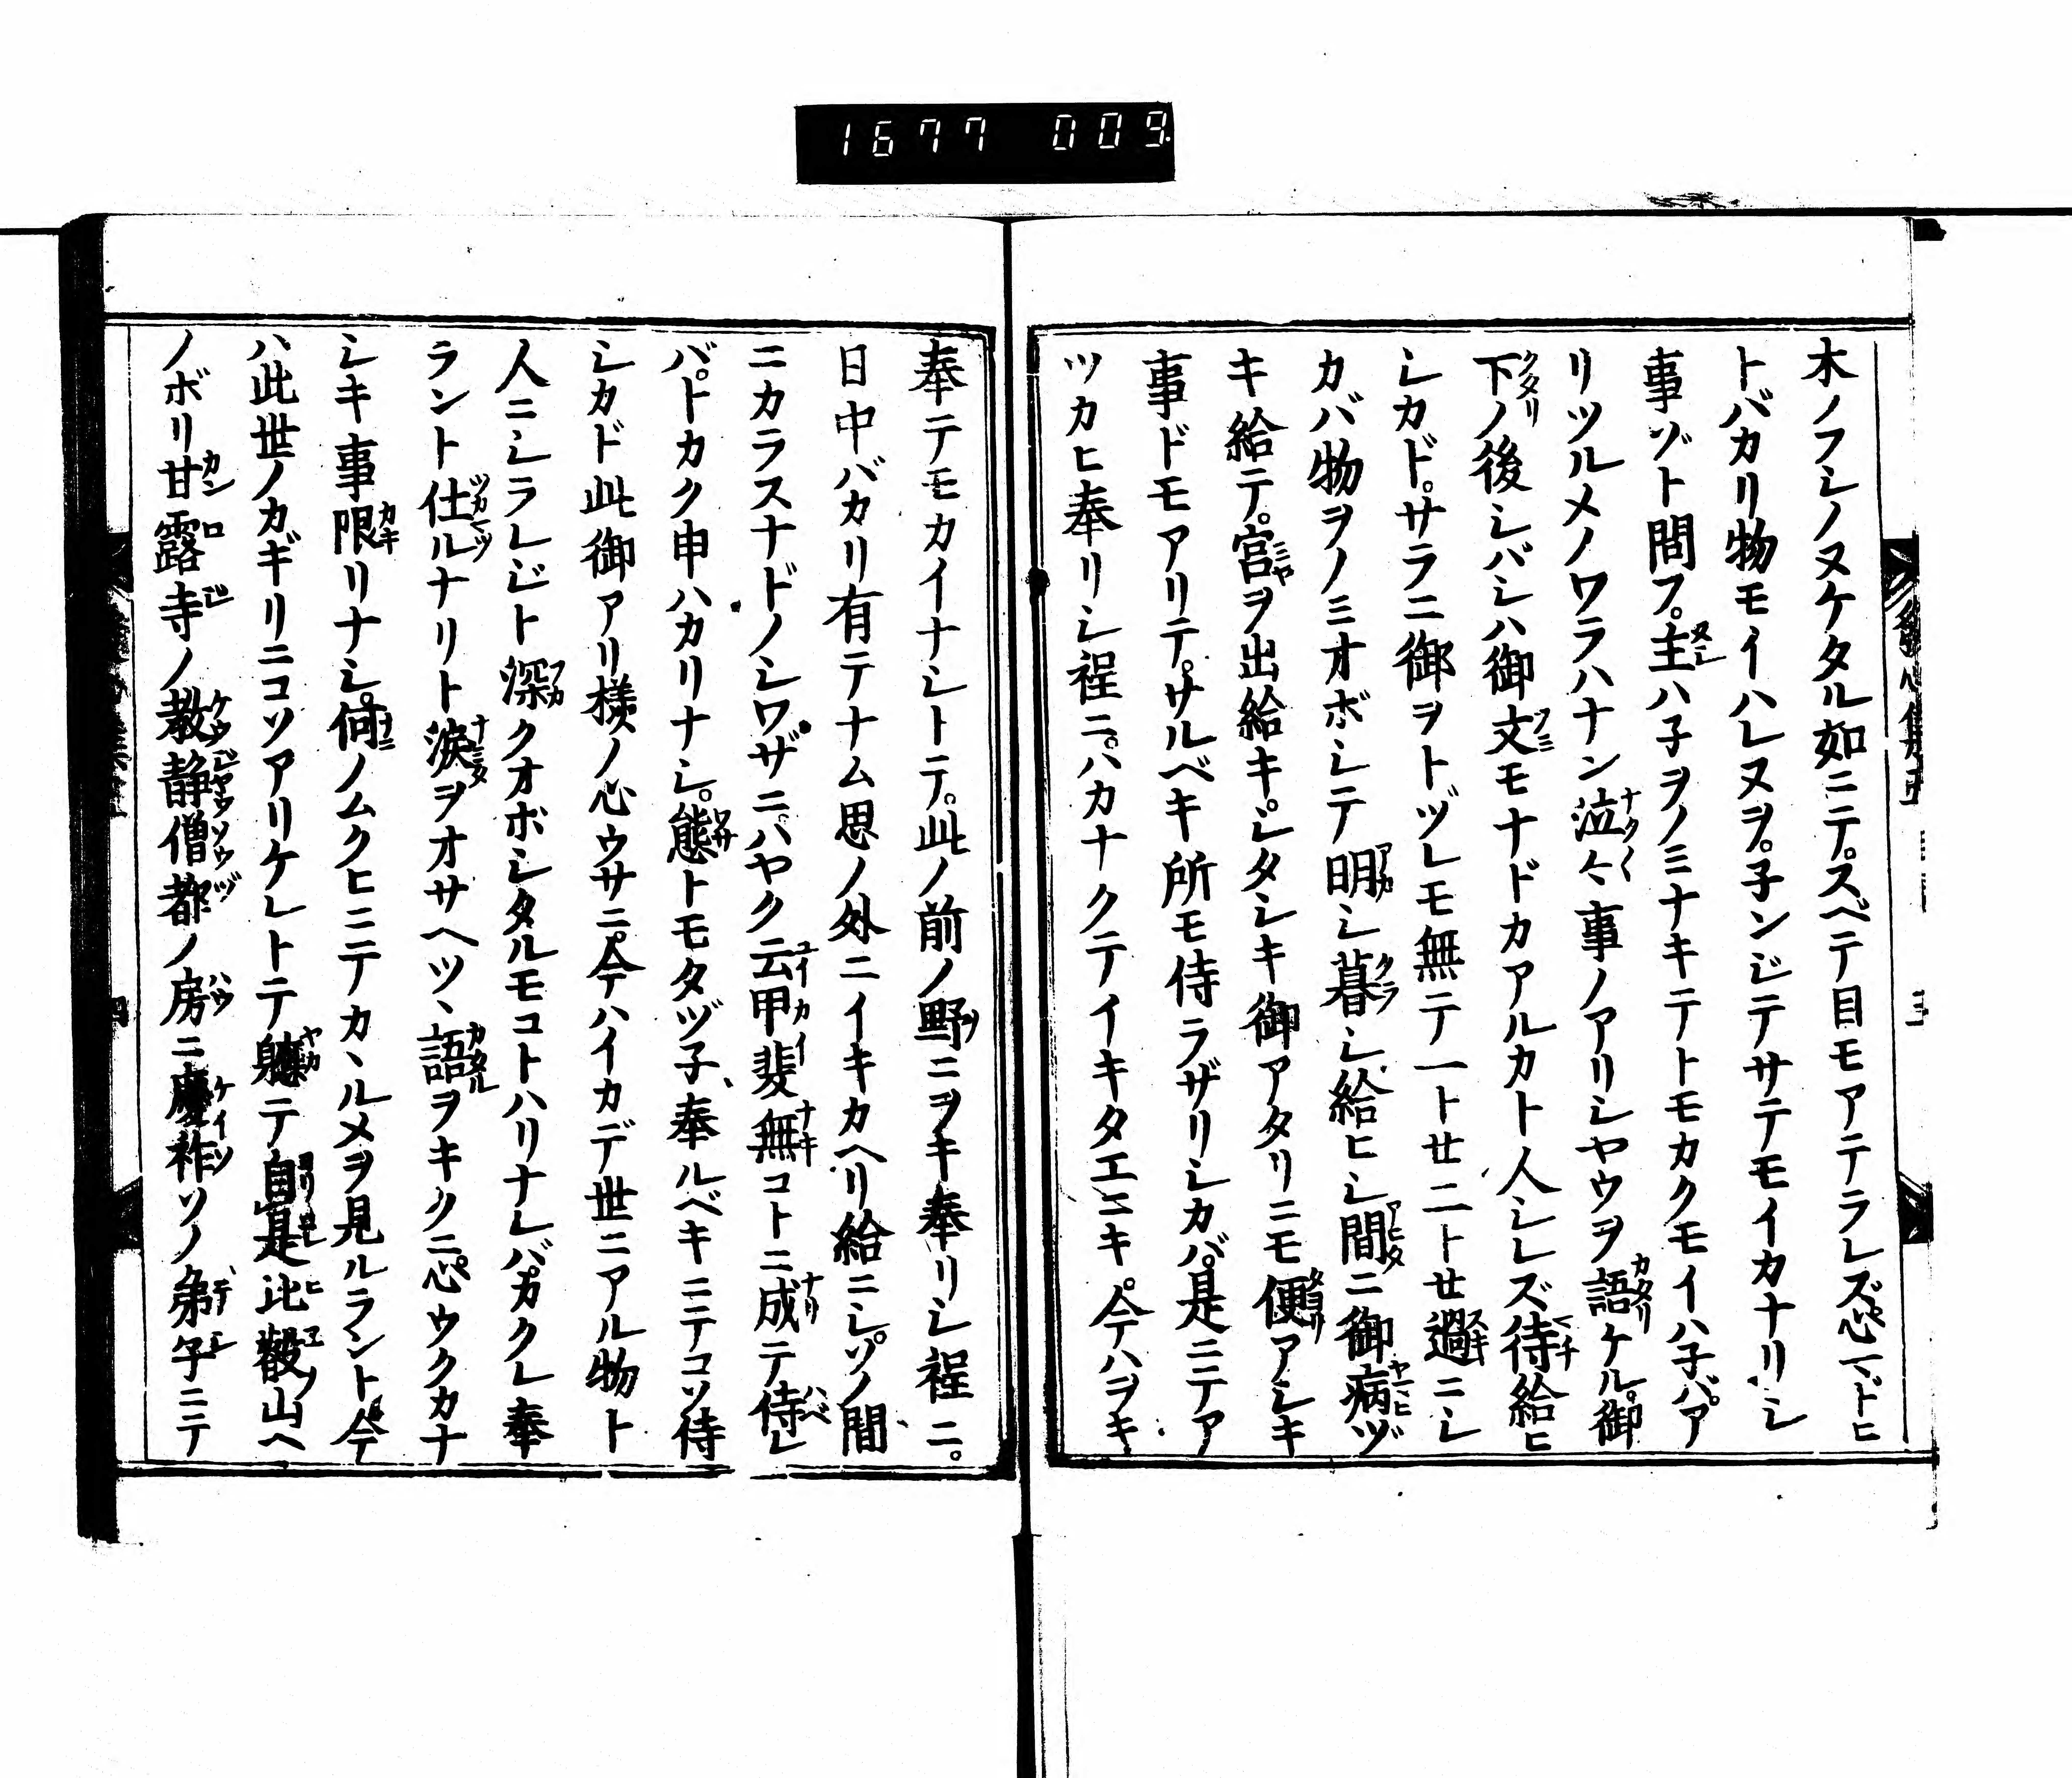 1677 009
木ノフシノヌケタル如ニテ。スベテ目モアテラレズ。心マドヒ
トバカリ物モイハレヌヲ。子ンジテサテモイカナリシ
事ゾト問フ。主ハ子ヲノミナキテトモカクモイハ子バ。ア
リツルメノワラハナン泣々事ノアリシヤウヲ語ケル。御
下ノ後シバシハ御文モナドカアルカト人シレズ待給ヒ
シカド。サラニ御ヲトヅレモ無テ一トセ二トセ過ニシ
カバ物ヲノミオボシテ明シ暮シ給ヒシ間ニ御病ヅ
キ給テ。宮ヲ出給キ。シタシキ御アタリニモ便アシキ
事ドモアリテ。サルベキ所モ侍ラザリシカバ。是ニテア
ツカヒ奉リシ程ニ。ハカナクテイキタエニキ。今ハヲキ
奉テモカイナシトテ。此ノ前ノ野ニヲキ奉リシ程ニ。
日中バカリ有テナム思ノ外ニイキカヘリ給ニシ。ソノ間
ニカラスナドノシワザニ。ハヤク云甲斐無コトニ成テ侍レ
バ。トカク申ハカリナシ。態トモタヅ子奉ルベキニテコソ侍
シカド此御アリ様ノ心ウサニ。今ハイカデ世ニアル物ト
人ニシラレジト深クオボシタルモコトハリナレバ。カクレ奉
ラント仕ルナリト涙ヲオサヘツヽ語ヲキクニ。心ウクカナ
シキ事限リナシ。何ノムクヒニテカヽルメヲ見ルラント。今
ハ此世ノカギリニコソアリケレトテ軈テ自是比叡山ヘ
ノボリ甘露寺ノ教静僧都ノ房ニ慶祚ソノ弟子ニテ